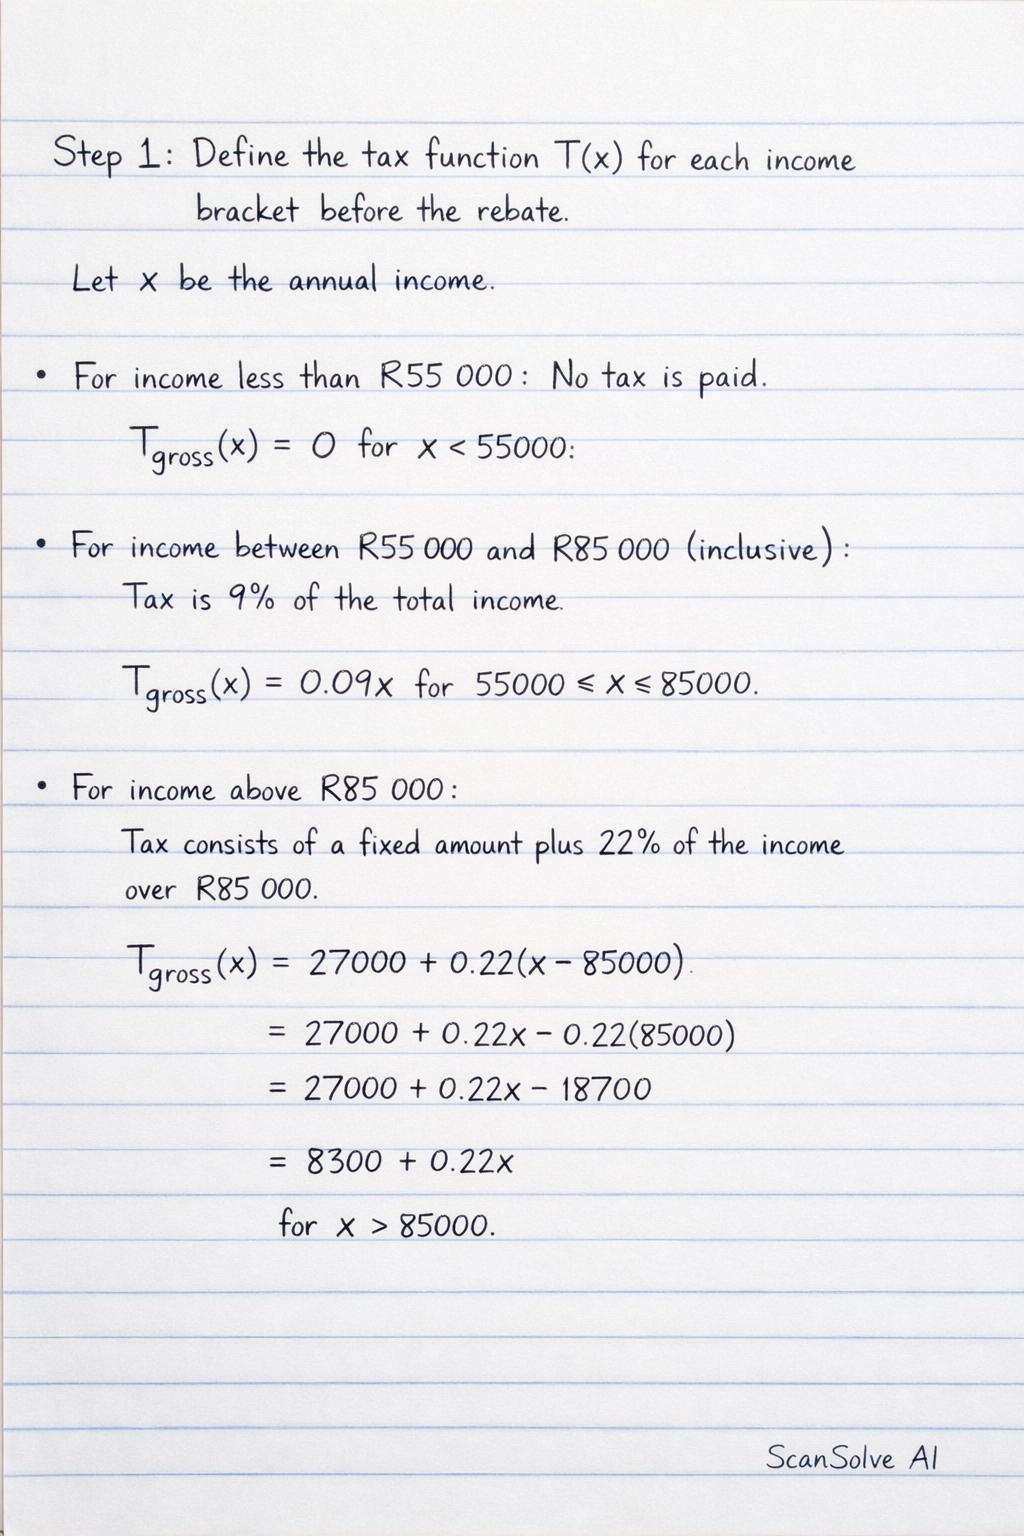 Step 1: Define the tax function T(x) for each income
bracket before the rebate.
Let x be the annual income.
• For income less than R55 000: No tax is paid.
Tgross(x) = 0 for x < 55000:
• For income between R55 000 and R85 000 (inclusive):
Tax is 9% of the total income.
Tgross(x) = 0.09x for 55000 ≤ x ≤ 85000.
• For income above R85 000:
Tax consists of a fixed amount plus 22% of the income
over R85 000.
Tgross(x) = 27000 + 0.22(x − 85000).
= 27000 + 0.22x − 0.22(85000)
= 27000 + 0.22x − 18700
= 8300 + 0.22x
for x > 85000.
ScanSolve AI